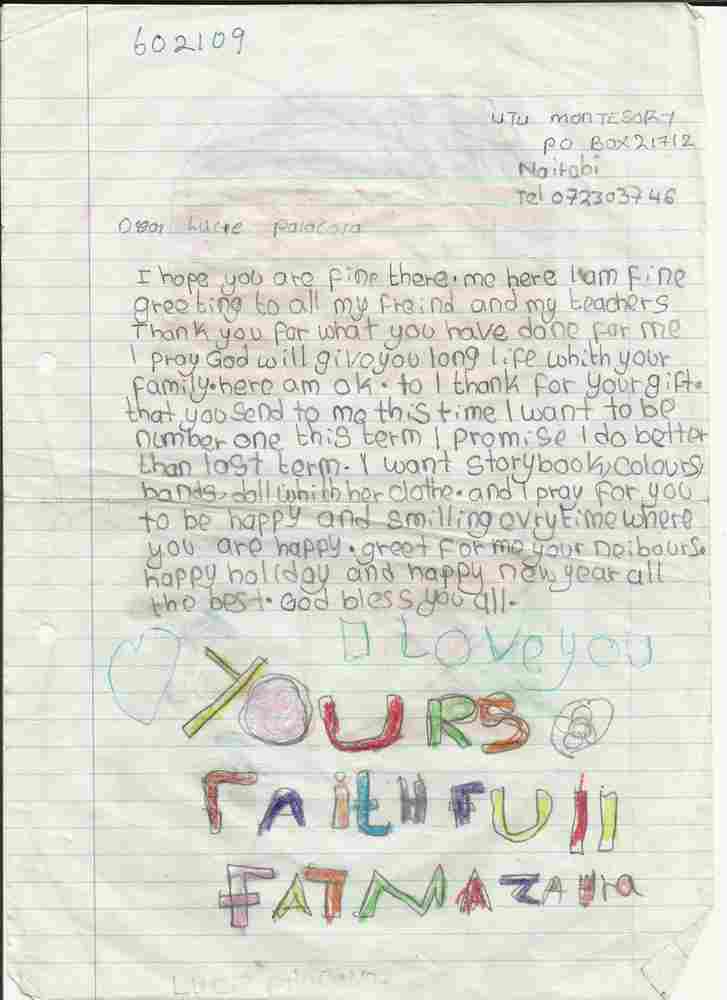 602109
UTU MONTESORY
P.O BOX 21712
Nairobi
Tel 072303746
Dear Lucie
I hope you are fine there. me here I am fine
greeting to all my freind and my teachers
Thank you for what you have done for me
I pray God will give you long life whith your
family. here am ok. to I thank for your gift.
that you send to me this time I want to be
number one this term I promise I do better
than last term. I want storybook, colours,
bands, doll whith her clothe. and I pray for you
to be happy and smilling evrytime where
you are happy. greet for me your neibours.
happy holiday and happy new year all
the best. God bless you all.
I Love you
YOURS
FAITHFULL
FATMAZAHRA